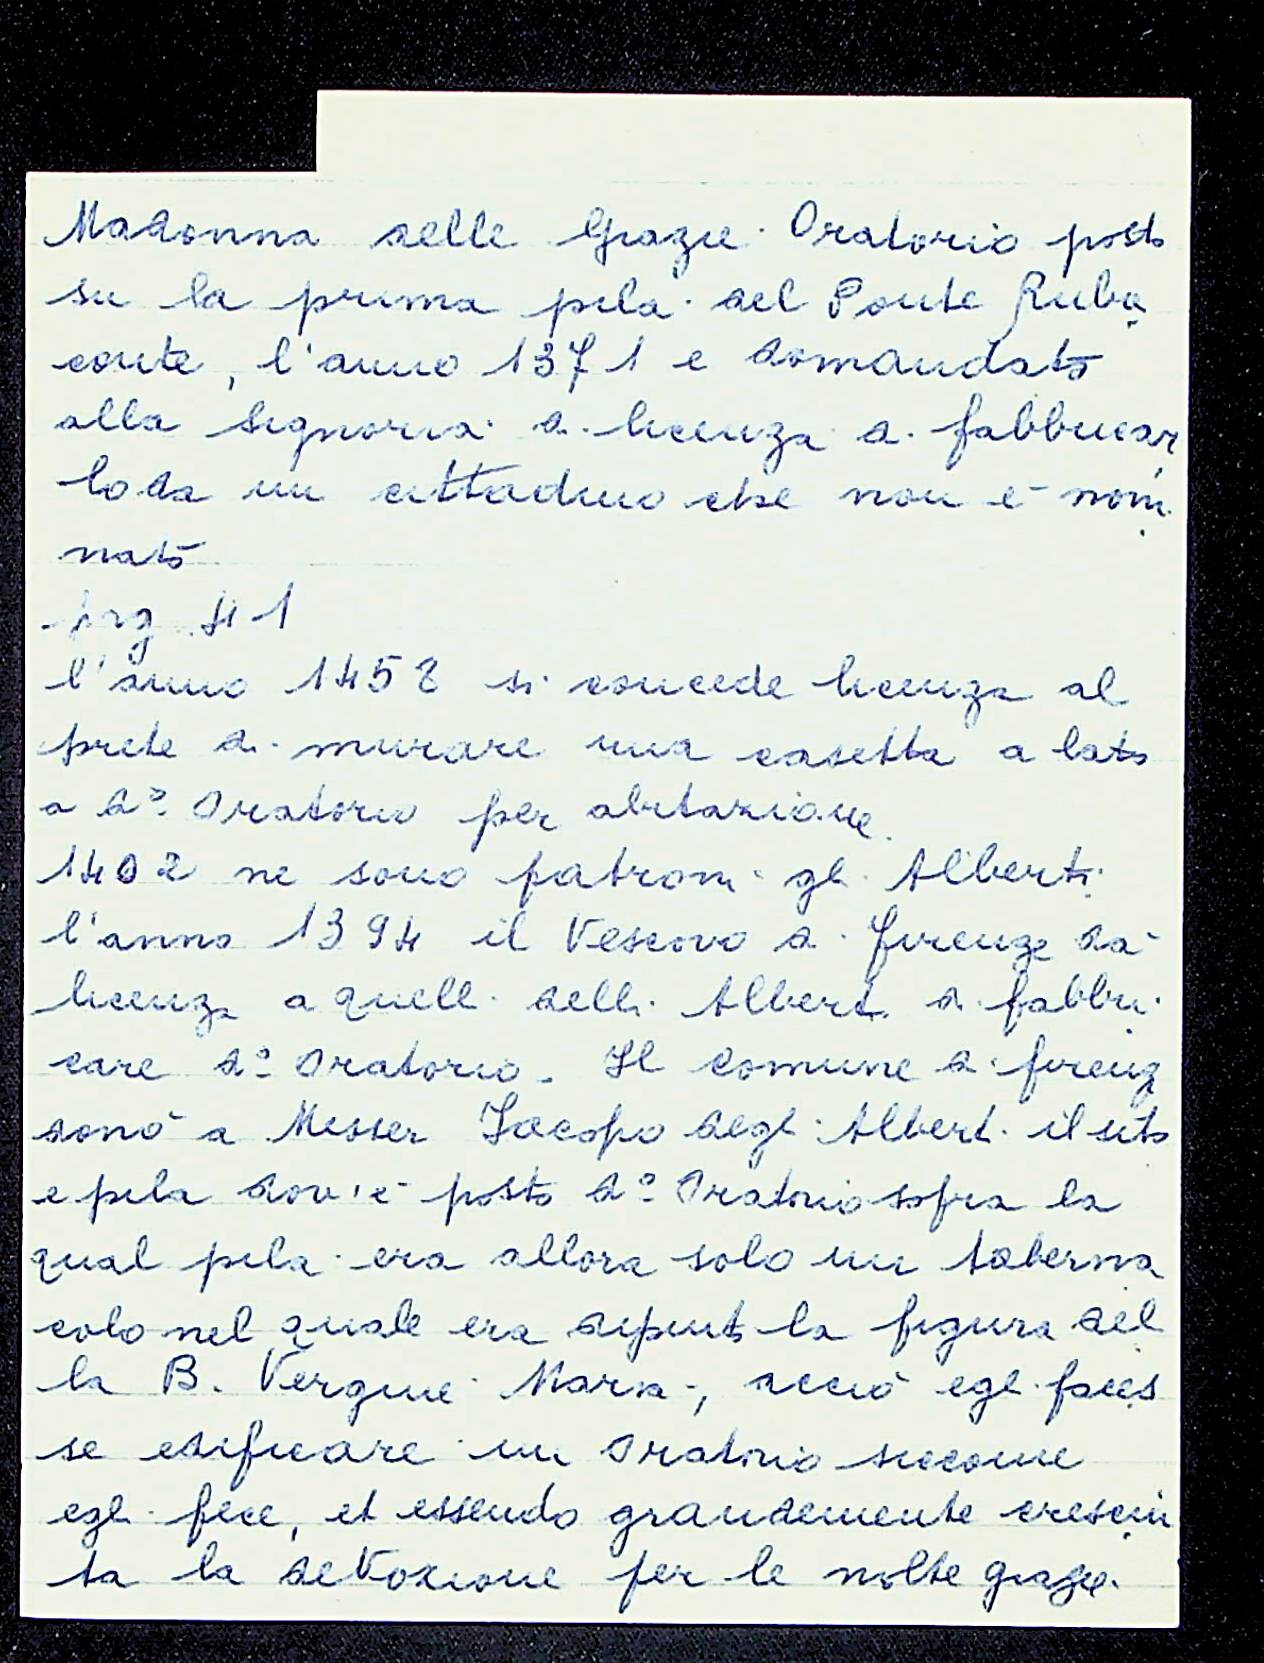 Madonna delle Grazie Oratorio posto
su la prima pila del Ponte Ruba
conte, l'anno 1371 e domandato
alla signoria di licenza di fabbricar
lo da un cittadino che non è nomi
nato
pag 41
l'anno 1458 si concede licenza al
prete di murare una casetta a lato
a do. Oratorio per abitazione.
1402 ne sono patroni gli Alberti
l'anno 1394 il Vescovo di Firenze dà
licenza a quelli delli Alberti di fabbri
care do Oratorio. Il Comune di Firenze
donò a Messer Jacopo degli Alberti il sito
e pila dov'è posto do Oratorio sopra la
qual pila era allora solo un taberna
colo nel quale era dipinto la figura del
la B. Vergine Maria, acciò egli faces
se edificare un Oratorio siccome
egli fece, et essendo grandemente cresciu
ta la devozione per le molte grazie